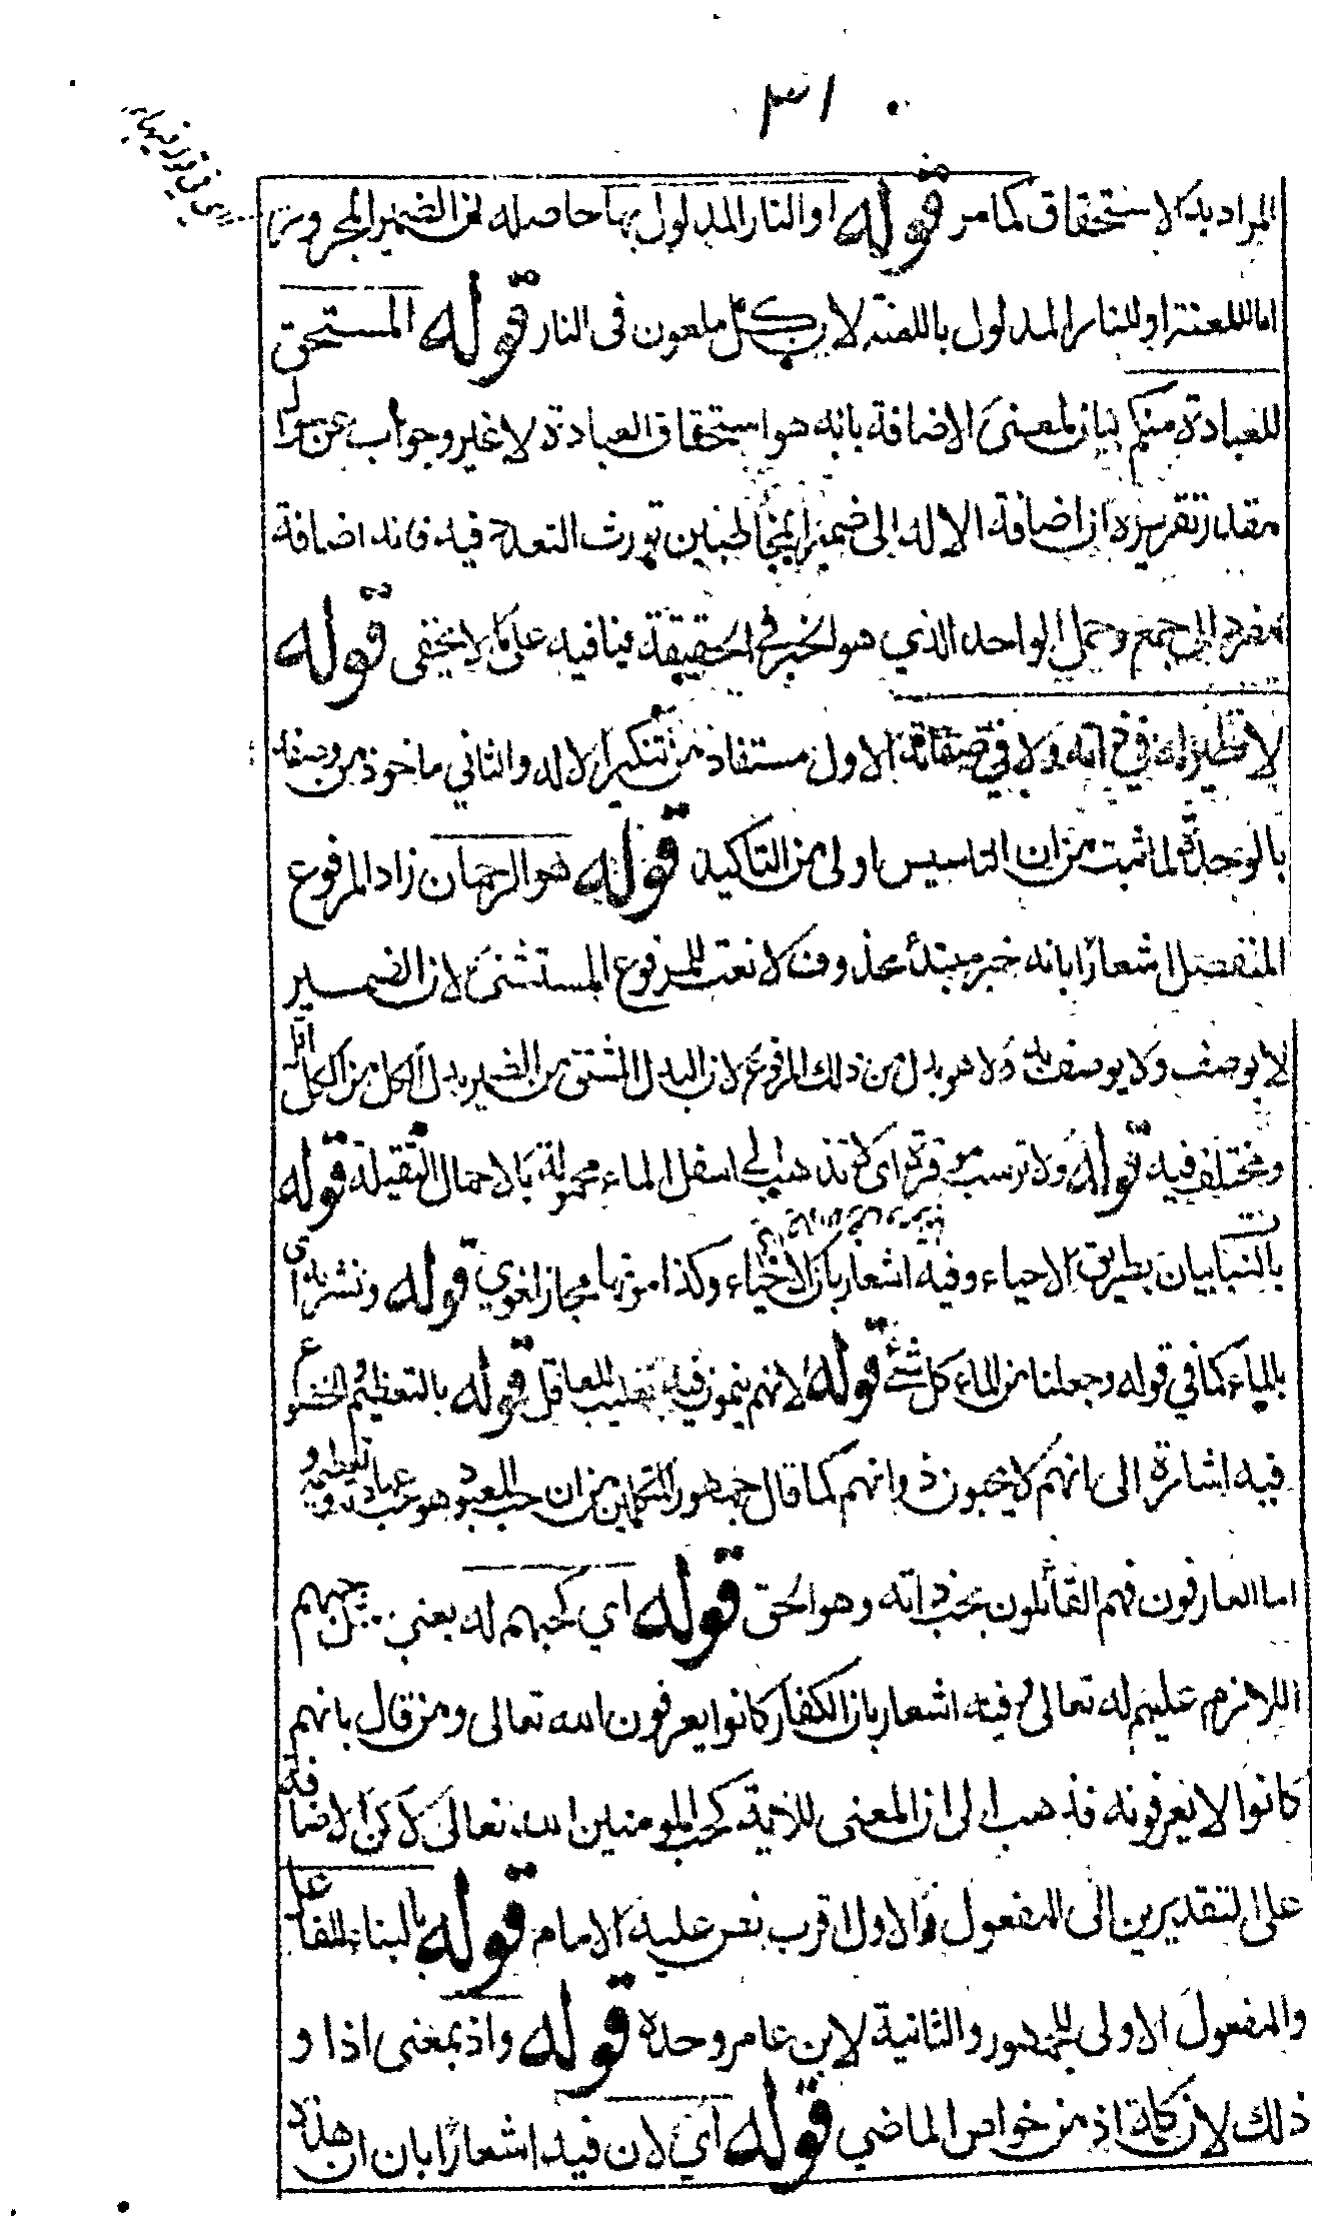 ٣١
المراد به الاستحقاق كما مر قوله او النار المدلول بها حاصله ان الضمير المجرور
اما للعنة او للنار المدلول باللعنة لان كل ملعون فى النار قوله المستحق
للعبادة منكم بيان لمعنى الاضافة بانه هو استحقاق العبادة لا غير وجواب عن سوال
مقدر تقريره ان اضافة الاله الى ضمير المخاطبين تورث التعدد فيه فانه اضافة
مفرد الى جمع وحمل الواحد الذي هو الخبر في الحقيقة ينافيه على ما لا يخفى قوله
لا نظير له في ذاته ولا في صفاته الاول مستفاد من تنكير الاله والثاني ماخوذ من وصفه
بالوحدة لما ثبت من ان التاسيس اولى من التاكيد قوله هو الرحمان زاد المرفوع
المنفصل اشعارا بانه خبر مبتدأ محذوف لا نعت للمرفوع المستثنى لان الضمير
لا يوصف ولا يوصف به ولا هو بدل من ذلك المرفوع لان البدل المستثنى من الضمير بدل الكل من الكل اقل
ومختلف فيه قوله ولا ترسب موقرة اى لا تذهب الى اسفل الماء محمولة بالاحمال الثقيلة قوله
بالنبات بيان بطريق الاحياء وفيه اشعار بان الاحياء وكذا موتها مجاز لغوي قوله ونشر به اى
بالماء كما في قوله وجعلنا من الماء كل شئ قوله لانهم ينمون فيه تغليب للعاقل قوله بالتعظيم والخضوع
فيه اشارة الى انهم لا يحبون ذواتهم كما قال جمهور المتكلمين من ان حب المعبود هو حب عبادته وتعظيمه و
اما العارفون فهم القائلون بحب ذاته وهو الحق قوله اي كحبهم له يعني حبهم
اللازم عليهم له تعالى فيه اشعار بان الكفار كانوا يعرفون الله تعالى ومن قال بانهم
كانوا لا يعرفونه فذهب الى ان المعنى للاية كحب المومنين الله تعالى لاكن الاضافة
على التقديرين الى المفعول والاول اقرب نص عليه الامام قوله بالبناء للفاعل
والمفعول الاولى للجمهور والثانية لابن عامر وحده قوله واذ بمعنى اذا و
ذلك لان كلمة اذ من خواص الماضي قوله اي لان فيه اشعارا بان هذه